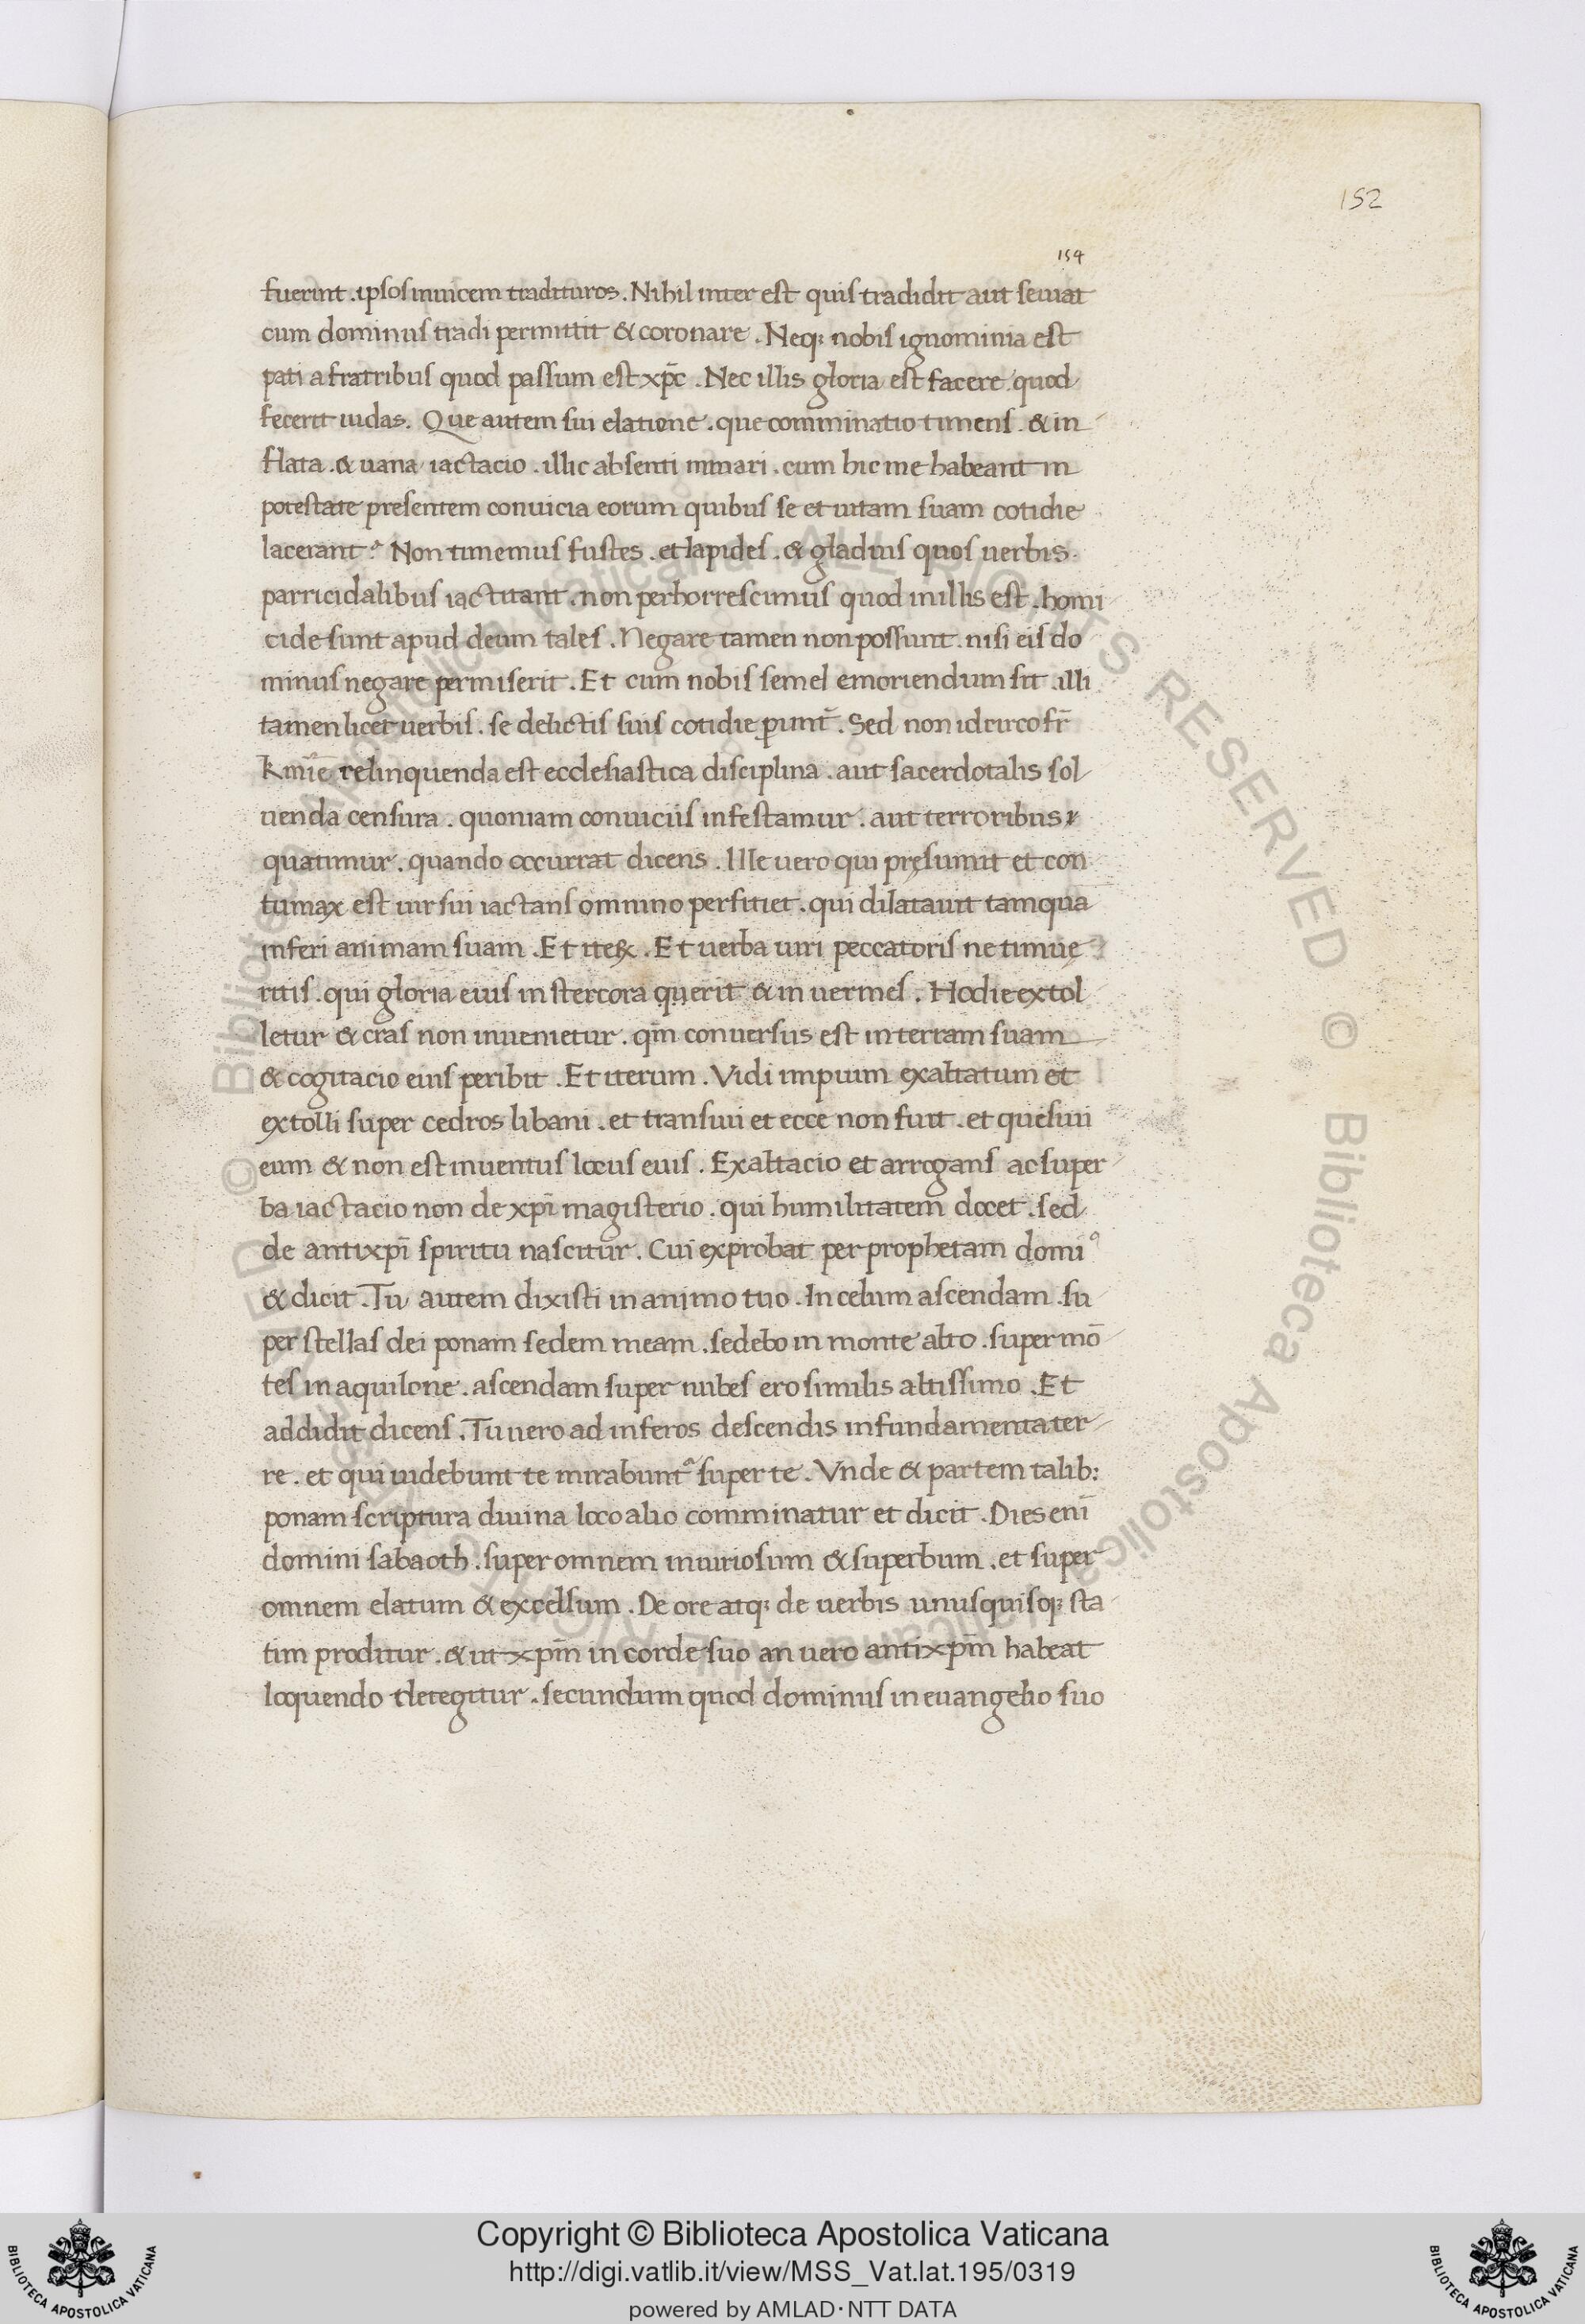 152
154
fuerint . ipsos inuicem tradituros . Nihil inter est quis tradidit aut seuiat
cum dominus tradi permittit & coronare . Neq; nobis ignominia est
pati a fratribus quod passum est xp̄c . Nec illis gloria est facere quod
fecerit iudas . Que autem sui elatione . que comminatio timens . & in
flata . & uana iactacio . illic absenti minari . cum hic me habeant in
potestate presentem conuicia eorum quibus se et uitam suam cotidie
lacerant . Non timemus fustes . et lapides . & gladius quos uerbis
parricidalibus iactitant . non perhorrescimus quod in illis est . homi
cide sunt apud deum tales . Negare tamen non possunt . nisi eis do
minus negare permiserit . Et cum nobis semel emoriendum sit . illi
tamen licet uerbis . se delictis suis cotidie ꝑimt̄ . Sed non idcirco fr̄
relinquenda est ecclesiastica disciplina . aut sacerdotalis sol
uenda censura . quoniam conuiciis infestamur . aut terroribus
quatimur . quando occurrat dicens . Ille uero qui pręsumit et con
tumax est uir sui iactans omnino perfitiet . qui dilatauit tamqua
inferi animam suam . Et iteꝝ . Et uerba uiri peccatoris ne timue
ritis . qui gloria eius in stercora querit & in uermes . Hodie extol
letur & cras non inuenietur . qm̄ conuersus est in terram suam
& cogitacio eius peribit . Et iterum . Vidi impium exaltatum et
extolli super cedros libani . et transiui et ecce non fuit . et quesiui
eum & non est inuentus locus euis . Exaltacio et arrogans ac super
ba iactacio non de xpī magisterio . qui humilitatem docet . sed
de antixpī spiritu nascitur . Cui exprobat per prophetam domi⁹
& dicit . Tu autem dixisti in animo tuo . In celum ascendam . su
per stellas dei ponam sedem meam . sedebo in monte alto . super mō
tes in aquilone . ascendam super nubes ero similis altissimo . Et
addidit dicens . Tu uero ad inferos descendis in fundamenta ter
re . et qui uidebunt te mirabunt᷑ super te . Vnde & partem talib:
ponam scriptura diuina loco alio comminatur et dicit . Dies enī
domini sabaoth . super omnem iniuriosum & superbum . et super
omnem elatum & excelsum . De ore atq; de uerbis unusquisq; sta
tim proditur . & ut xpm̄ in corde suo an uero antixpm̄ habeat
loquendo detegitur . secundum quod dominus in euangelio suo
Copyright © Biblioteca Apostolica Vaticana
http://digi.vatlib.it/view/MSS_Vat.lat.195/0319
powered by AMLAD·NTT DATA